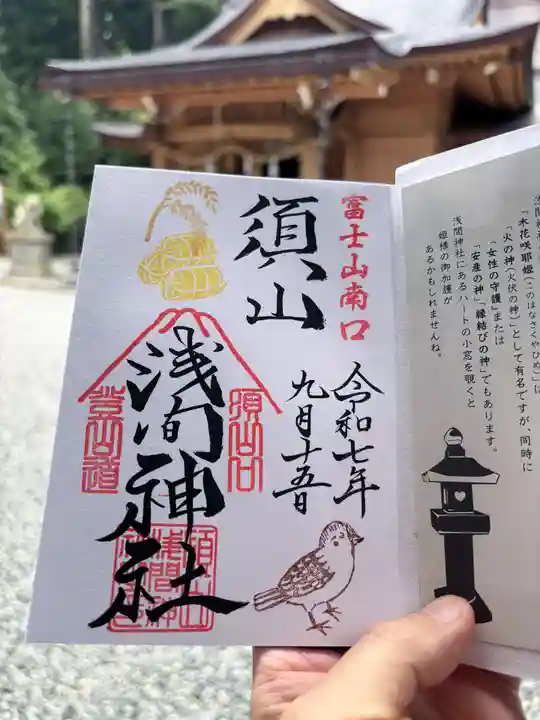 富士山南口
須山
浅间神社
令和七年
九月十五日
須山口
登山道
「木花咲耶姫(このはなさくやひめ)」は
「火の神(火伏の神)」として有名ですが、同時に
「女性の守護」または
「安産の神」「縁結びの神」でもあります。
浅間神社にあるハートの小窓を覗くと
姫様の御加護が
あるかもしれませんね。